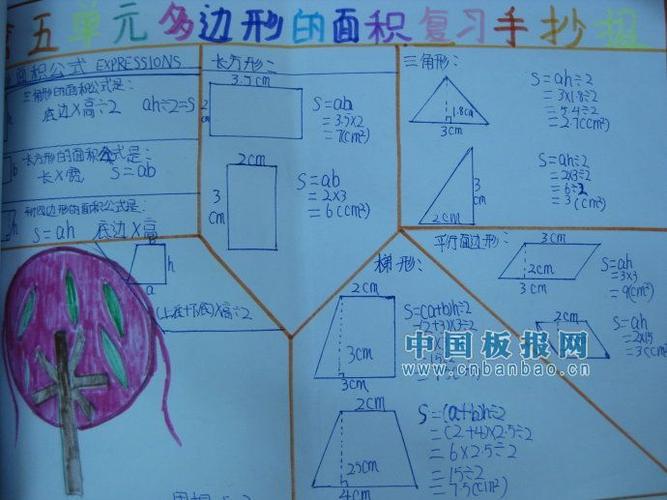 五单元多边形的面积复习手抄报
面积公式 EXPRESSIONS
三角形的面积公式是:
底边×高÷2 ah÷2=S
长方形的面积公式是:
长×宽 S=ab
b
四边形的面积公式是:
S=ah 底边×高
h
a
(上底+下底)×高÷2
长方形:
3.5cm
2
cm
S=ab
=3.5×2
=7(cm²)
2cm
3
cm
S=ab
=2×3
=6(cm²)
三角形:
1.8cm
3cm
S=ah÷2
=3×1.8÷2
=5.4÷2
=2.7(cm²)
3
cm
2cm
S=ah÷2
=2×3÷2
=6÷2
=3(cm²)
梯形:
2cm
3cm
3cm
S=(a+b)h÷2
=(2+3)×3÷2
2cm
2.5cm
4cm
S=(a+b)h÷2
=(2+4)×2.5÷2
=6×2.5÷2
=15÷2
=7.5(cm²)
平行四边形:
3cm
2cm
3cm
S=ah
=3×3
=9(cm²)
2cm
S=ah
=2×1.5
=3(cm²)
中国板报网
www.cnbanbao.cn